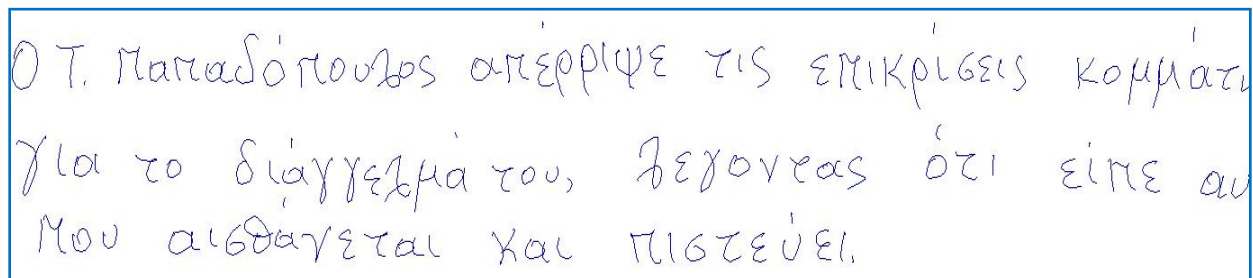 Ο Τ. Παπαδόπουλος απέρριψε τις επικρίσεις
για το διάγγελμά του, λέγοντας ότι είπε
που αισθάνεται και πιστεύει.